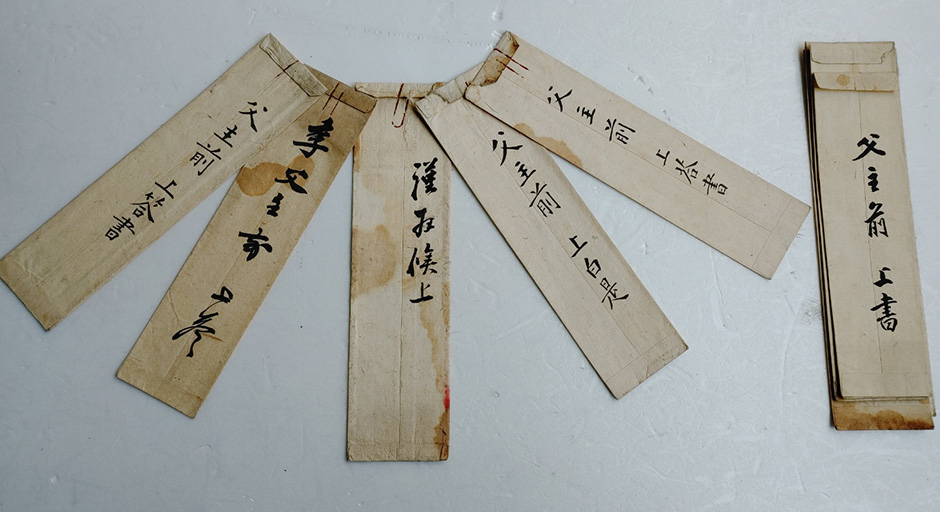 父主前 上答書
父主前 上
謹再候上
父主前 上白是
父主前 上答書
父主前 上書